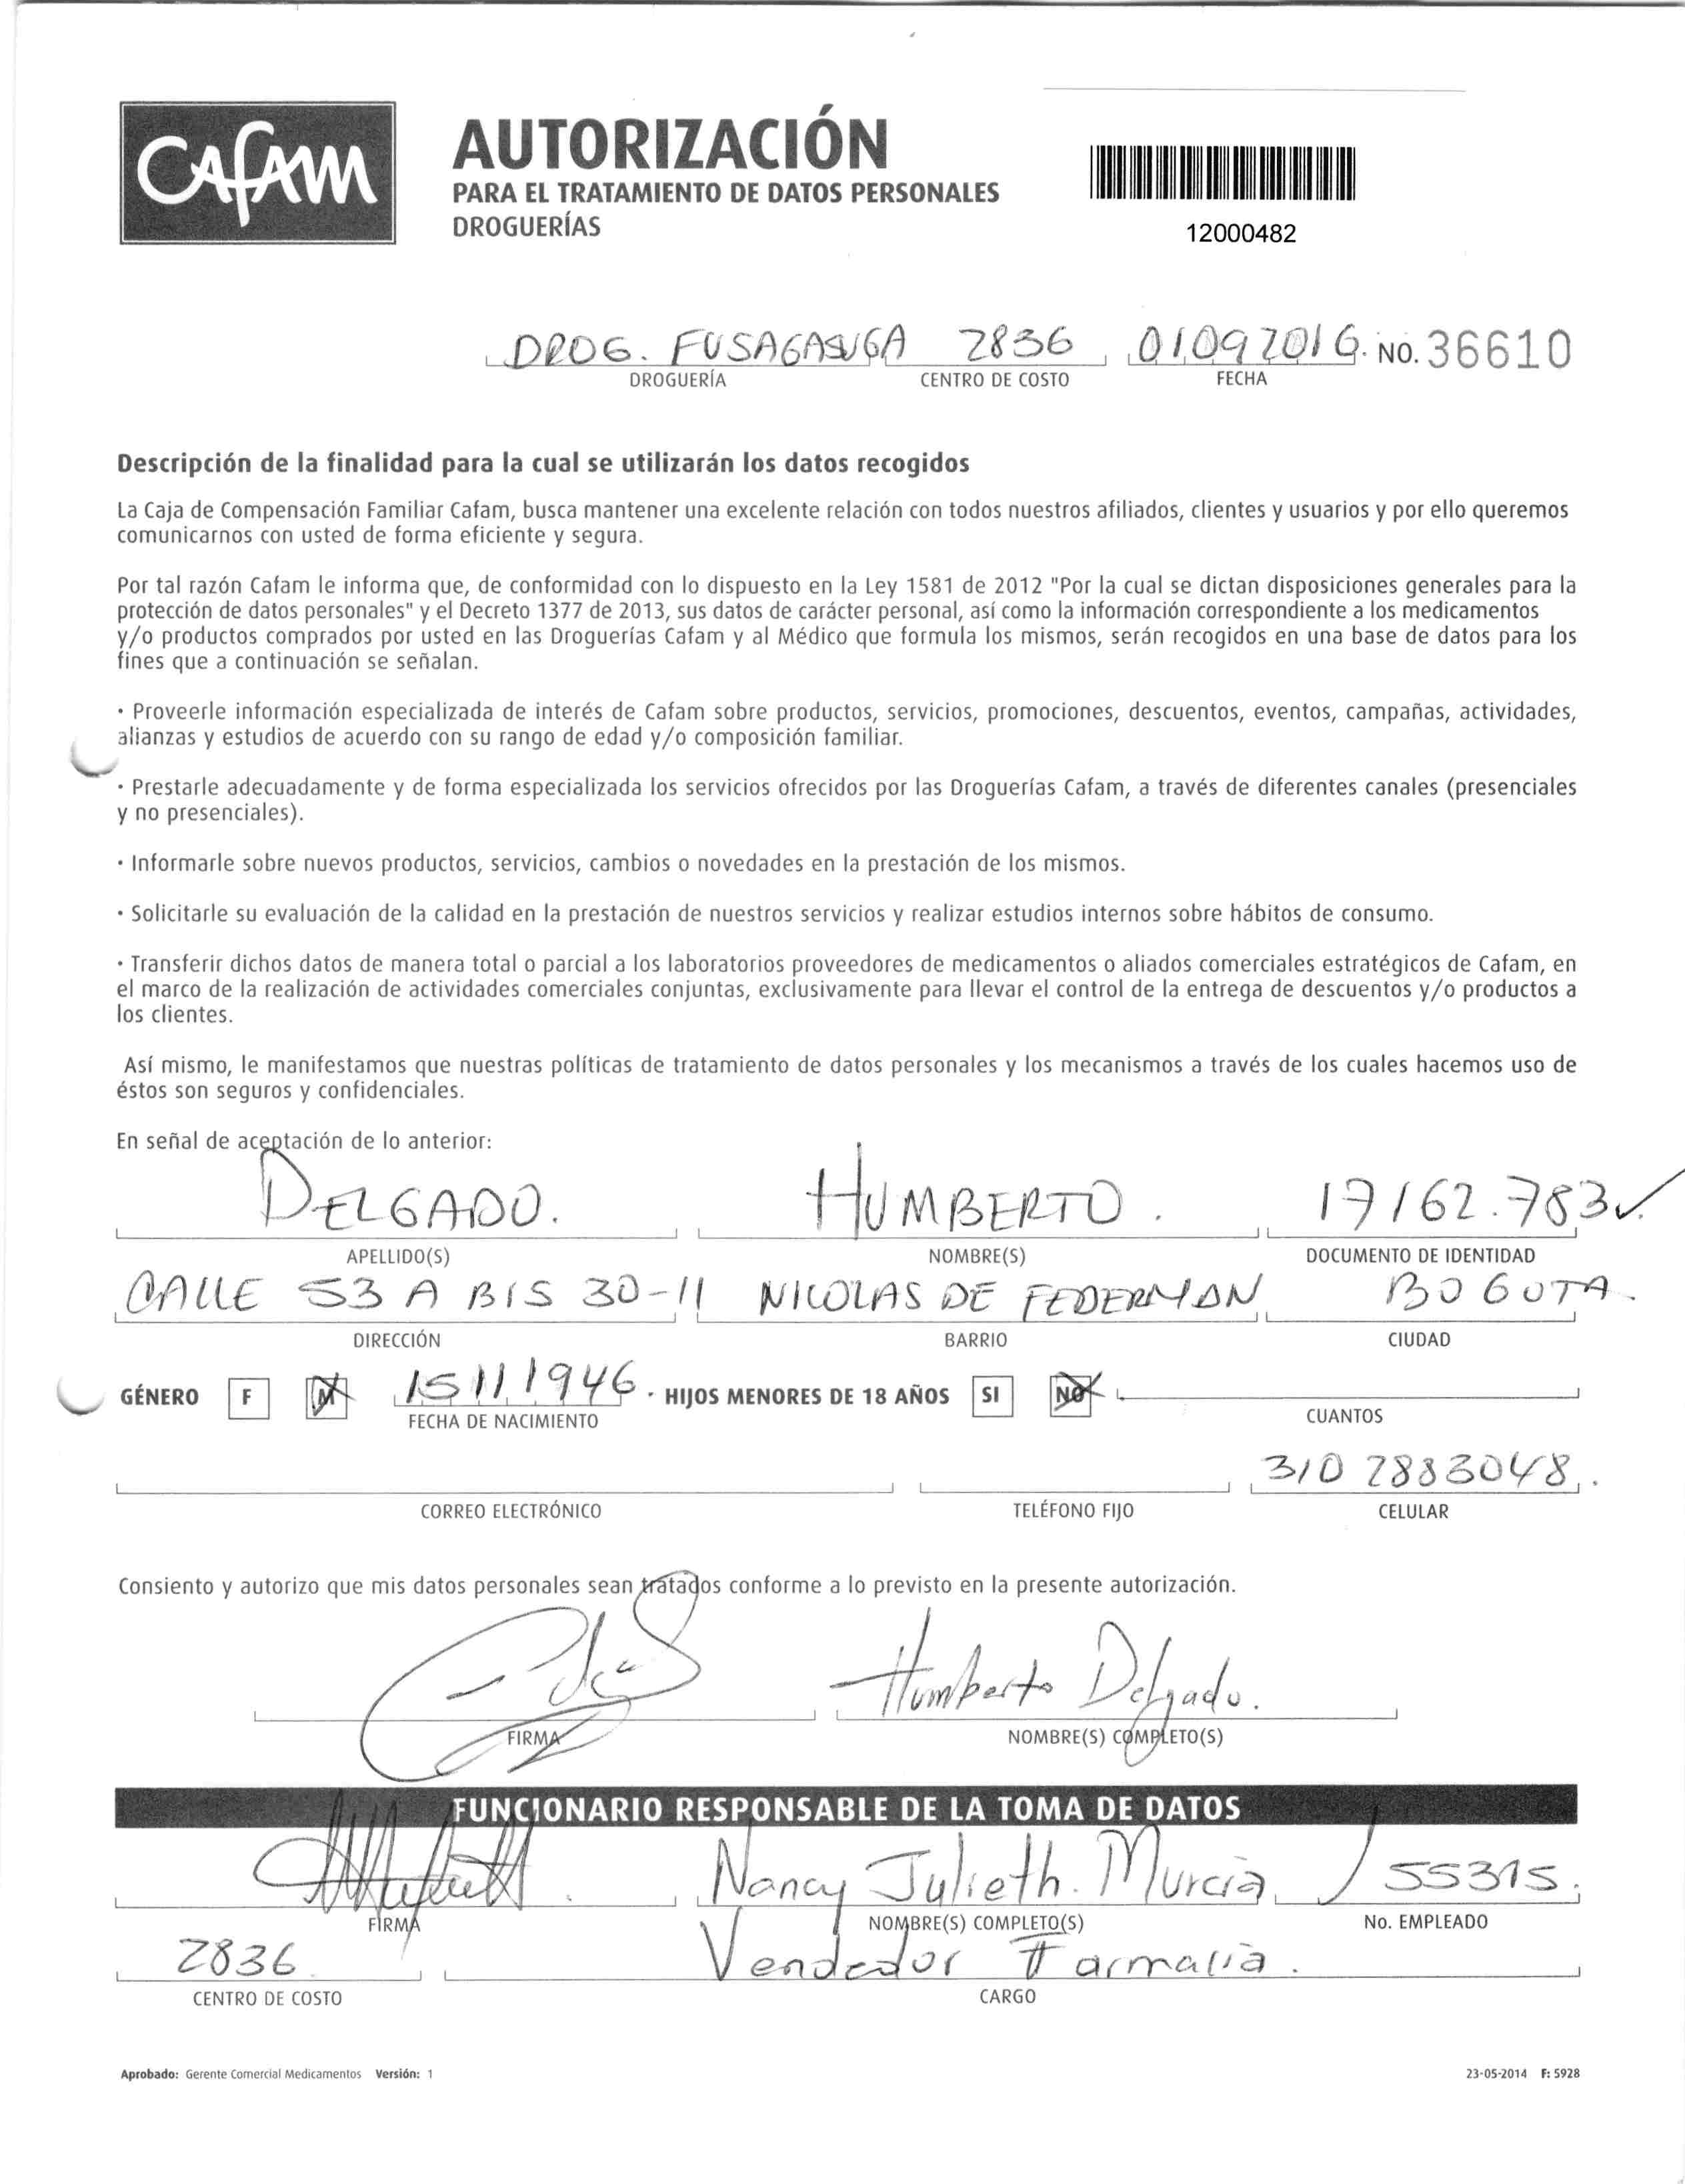 CAFAM
AUTORIZACIÓN
PARA EL TRATAMIENTO DE DATOS PERSONALES
DROGUERÍAS
12000482
DROG. FUSAGASUGA 2836 01092016. NO. 36610
DROGUERÍA CENTRO DE COSTO FECHA
Descripción de la finalidad para la cual se utilizarán los datos recogidos
La Caja de Compensación Familiar Cafam, busca mantener una excelente relación con todos nuestros afiliados, clientes y usuarios y por ello queremos
comunicarnos con usted de forma eficiente y segura.
Por tal razón Cafam le informa que, de conformidad con lo dispuesto en la Ley 1581 de 2012 "Por la cual se dictan disposiciones generales para la
protección de datos personales" y el Decreto 1377 de 2013, sus datos de carácter personal, así como la información correspondiente a los medicamentos
y/o productos comprados por usted en las Droguerías Cafam y al Médico que formula los mismos, serán recogidos en una base de datos para los
fines que a continuación se señalan.
· Proveerle información especializada de interés de Cafam sobre productos, servicios, promociones, descuentos, eventos, campañas, actividades,
alianzas y estudios de acuerdo con su rango de edad y/o composición familiar.
· Prestarle adecuadamente y de forma especializada los servicios ofrecidos por las Droguerías Cafam, a través de diferentes canales (presenciales
y no presenciales).
· Informarle sobre nuevos productos, servicios, cambios o novedades en la prestación de los mismos.
· Solicitarle su evaluación de la calidad en la prestación de nuestros servicios y realizar estudios internos sobre hábitos de consumo.
· Transferir dichos datos de manera total o parcial a los laboratorios proveedores de medicamentos o aliados comerciales estratégicos de Cafam, en
el marco de la realización de actividades comerciales conjuntas, exclusivamente para llevar el control de la entrega de descuentos y/o productos a
los clientes.
Así mismo, le manifestamos que nuestras políticas de tratamiento de datos personales y los mecanismos a través de los cuales hacemos uso de
éstos son seguros y confidenciales.
En señal de aceptación de lo anterior:
DELGADO. HUMBERTO. 17162.783
APELLIDO(S) NOMBRE(S) DOCUMENTO DE IDENTIDAD
CALLE 53 A BIS 30-11 NICOLAS DE FEDERMAN BOGOTA.
DIRECCIÓN BARRIO CIUDAD
GÉNERO F M 15111946. HIJOS MENORES DE 18 AÑOS SI NO
FECHA DE NACIMIENTO CUANTOS
310 2883048.
CORREO ELECTRÓNICO TELÉFONO FIJO CELULAR
Consiento y autorizo que mis datos personales sean tratados conforme a lo previsto en la presente autorización.
Humberto Delgado.
FIRMA NOMBRE(S) COMPLETO(S)
FUNCIONARIO RESPONSABLE DE LA TOMA DE DATOS
Nancy Julieth. Murcia / 55315.
FIRMA NOMBRE(S) COMPLETO(S) No. EMPLEADO
2836 Vendedor Farmacia.
CENTRO DE COSTO CARGO
Aprobado: Gerente Comercial Medicamentos Versión: 1 23-05-2014 F: 5928